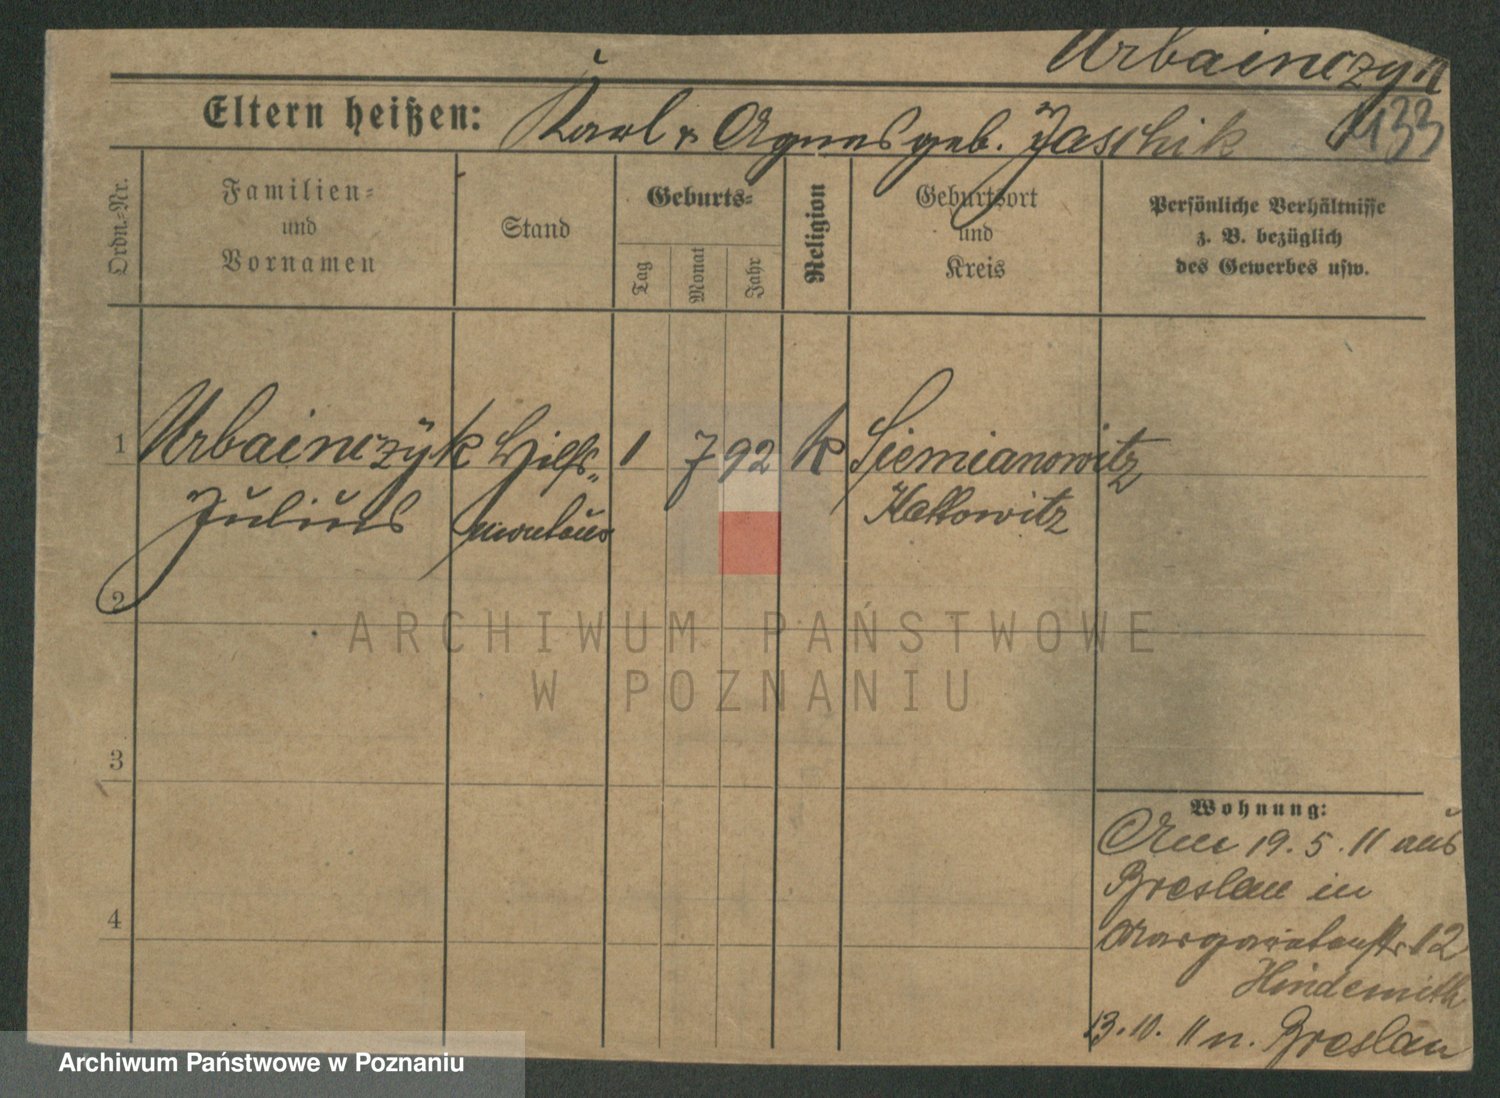 Urbainczyk
Eltern heißen: Karl u Agnes geb. Jaschik 133
Ordn.=Nr.
Familien=
und
Vornamen
Stand
Geburts=
Tag
Monat
Jahr
Religion
Geburtsort
und
Kreis
Persönliche Verhältnisse
z. B. bezüglich
des Gewerbes usw.
1 Urbainczyk Hilfs- 1 7 92 k Siemianowitz
Julius monteur Kattowitz
2
ARCHIWUM PAŃSTWOWE
W POZNANIU
3
4
Wohnung:
Am 19.5.11 aus
Breslau in
Margaretenstr. 12
Hindemith
13.10.11 n. Breslau
Archiwum Państwowe w Poznaniu